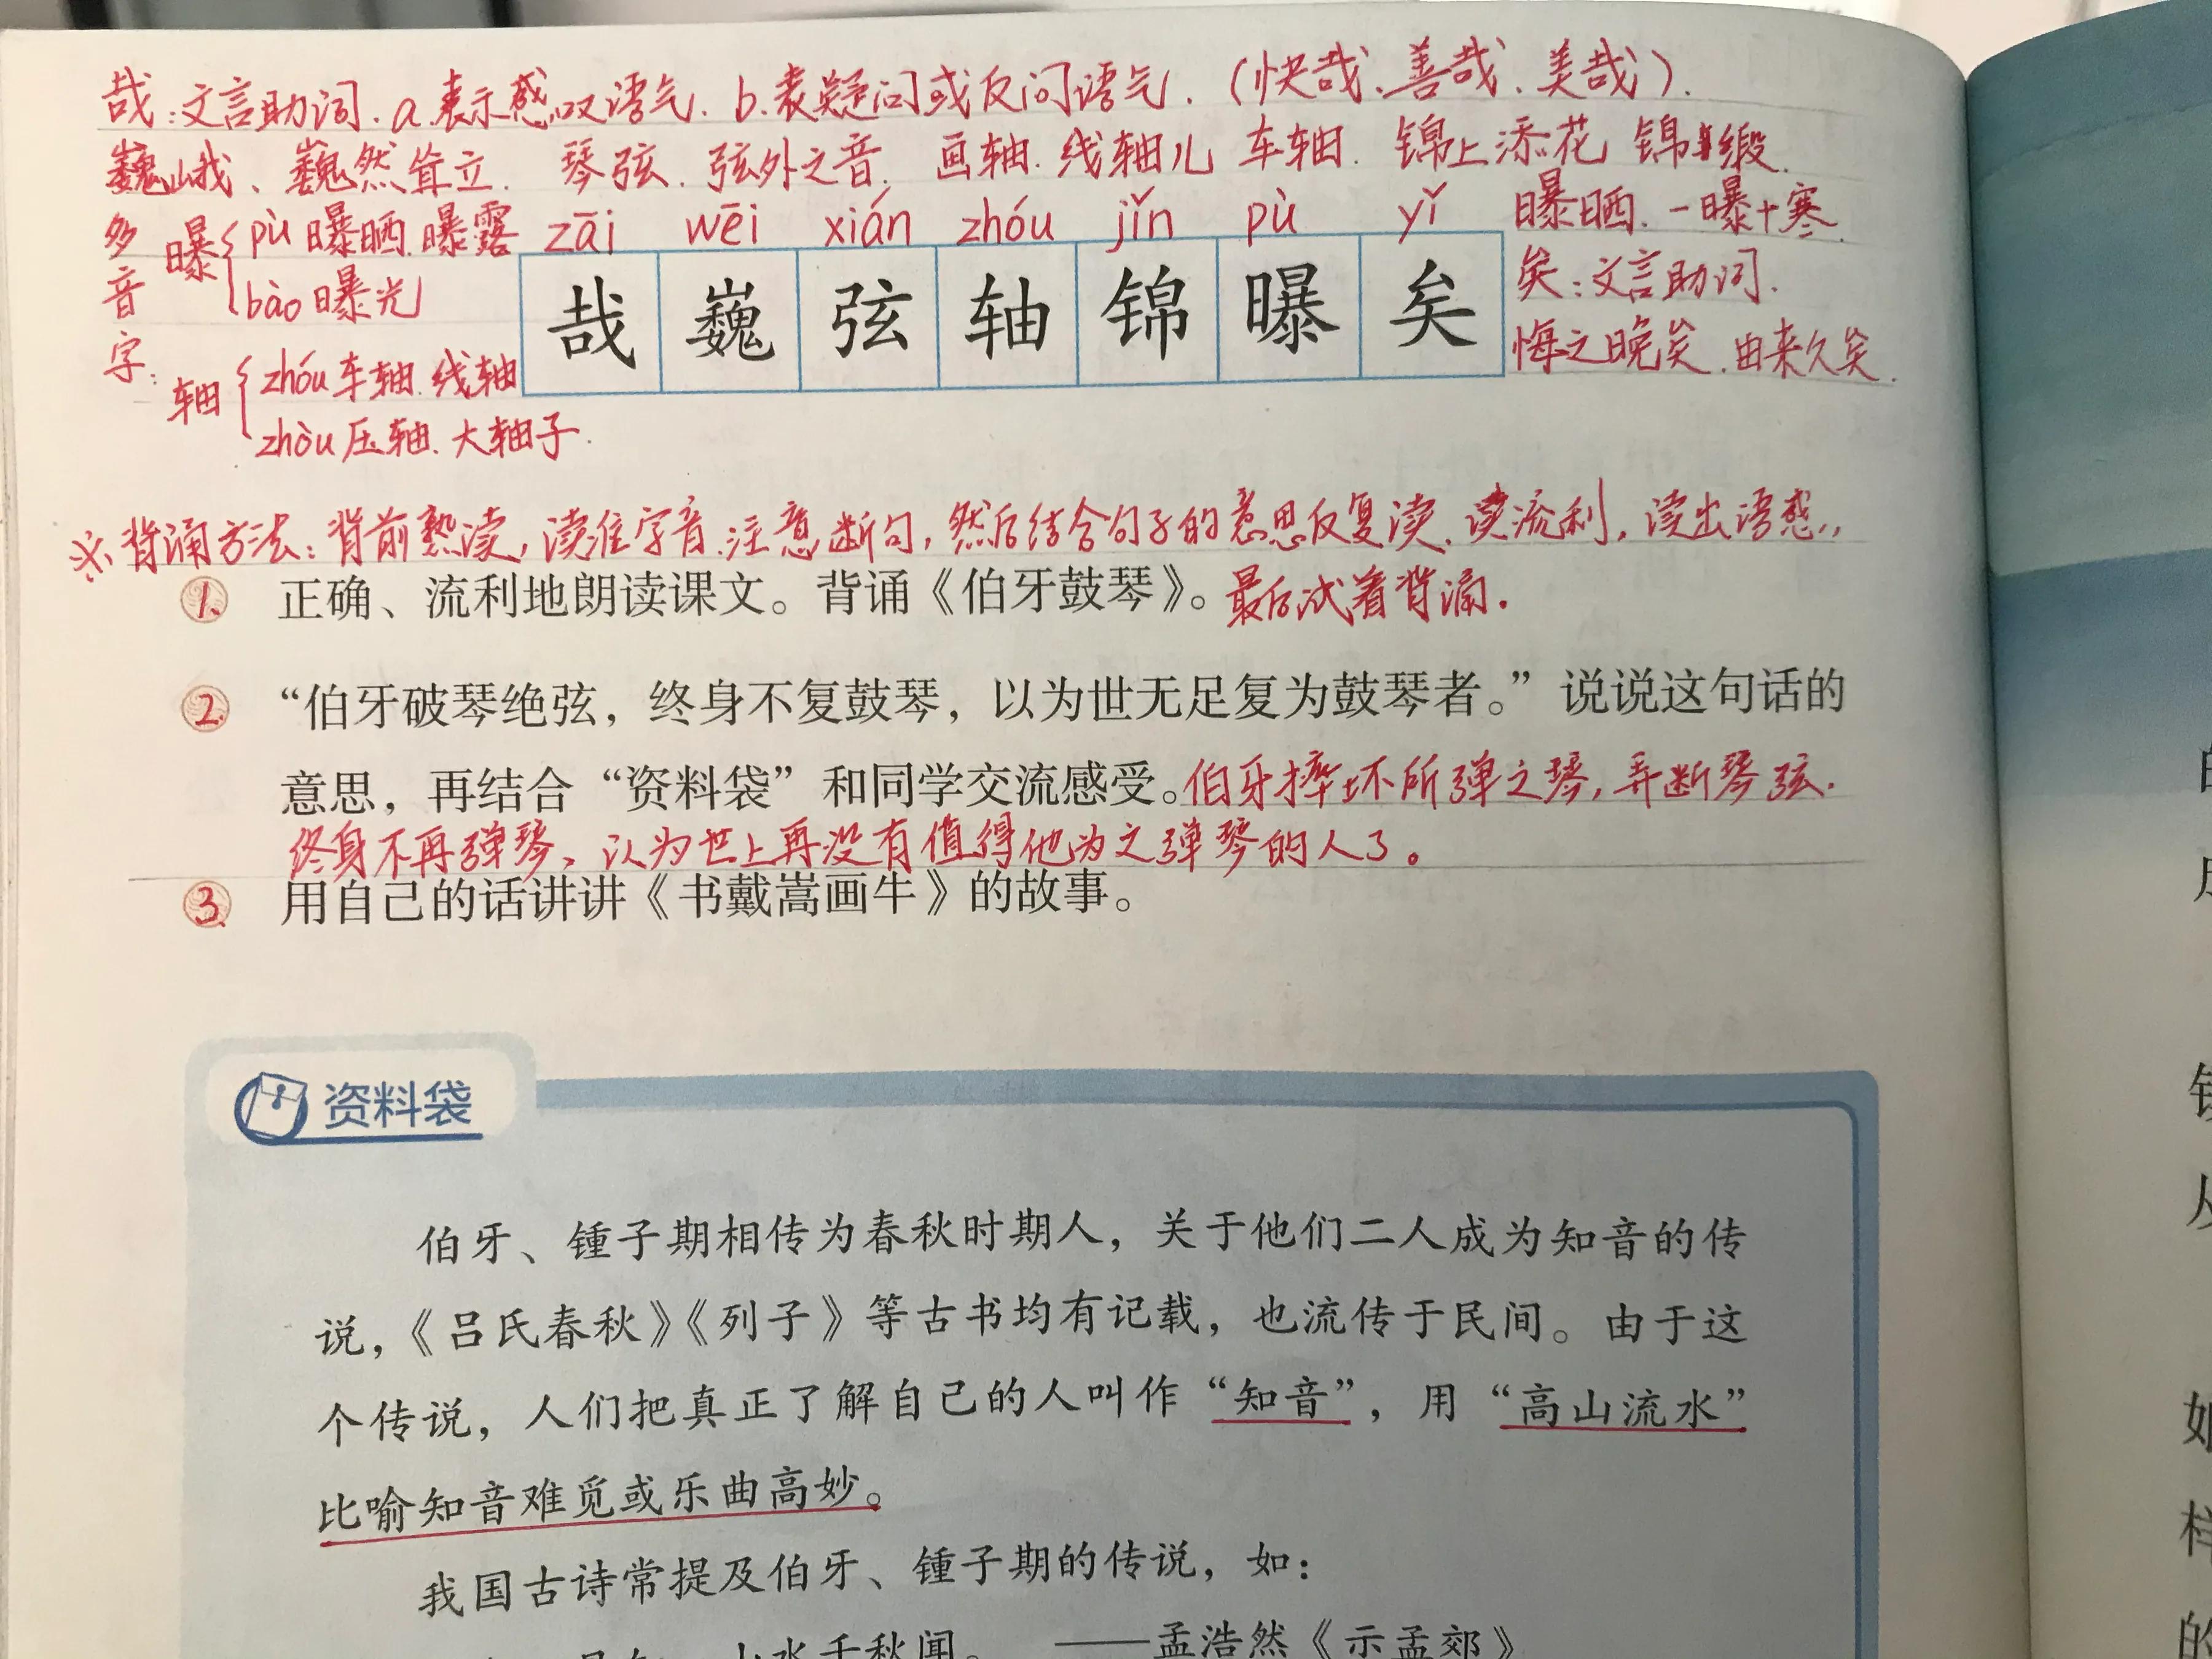 哉:文言助词.a.表示感叹语气.b.表疑问或反问语气.(快哉、善哉、美哉).
巍峨、巍然耸立. 琴弦.弦外之音. 画轴.线轴儿 车轴. 锦上添花 锦缎.
多音字:
曝{pù 曝晒.曝露
bào 曝光
轴{zhóu 车轴.线轴
zhòu 压轴.大轴子.
zāi wēi xián zhóu jǐn pù yǐ
哉 巍 弦 轴 锦 曝 矣
曝晒.一曝十寒.
矣:文言助词.
悔之晚矣.由来久矣.
※背诵方法:背前熟读,读准字音.注意断句,然后结合句子的意思反复读.读流利,读出语感,
1. 正确、流利地朗读课文。背诵《伯牙鼓琴》。最后试着背诵.
2. “伯牙破琴绝弦，终身不复鼓琴，以为世无足复为鼓琴者。”说说这句话的
意思，再结合“资料袋”和同学交流感受。伯牙摔坏所弹之琴,弄断琴弦.
终身不再弹琴、认为世上再没有值得他为之弹琴的人了。
3. 用自己的话讲讲《书戴嵩画牛》的故事。
资料袋
伯牙、锺子期相传为春秋时期人，关于他们二人成为知音的传
说，《吕氏春秋》《列子》等古书均有记载，也流传于民间。由于这
个传说，人们把真正了解自己的人叫作“知音”，用“高山流水”
比喻知音难觅或乐曲高妙。
我国古诗常提及伯牙、锺子期的传说，如：
山水千秋闻。 ——孟浩然《示孟郊》